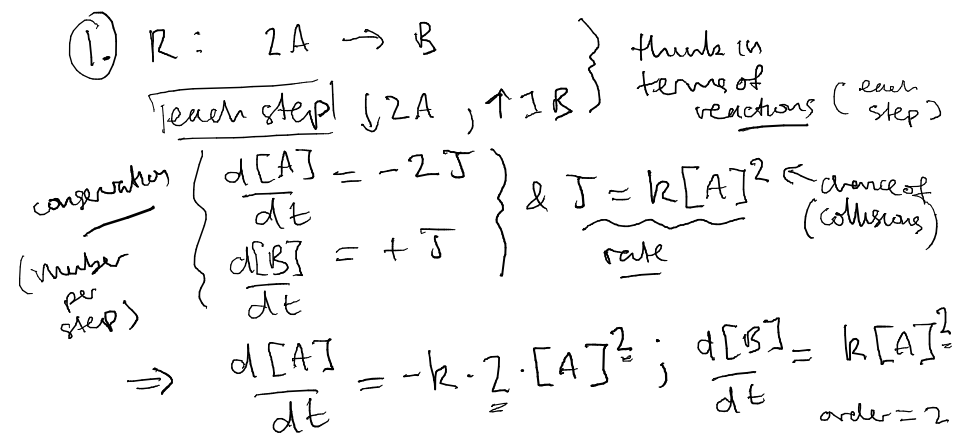 1. R : 2A → B
each step ↓2A , ↑1B
think in
terms of
reactions (each
step)
conservation
(number
per
step)
d[A]/dt = -2J
d[B]/dt = +J
& J = k[A]²
rate
← chance of
(collisions)
⇒ d[A]/dt = -k·2·[A]² ; d[B]/dt = k[A]²
order = 2